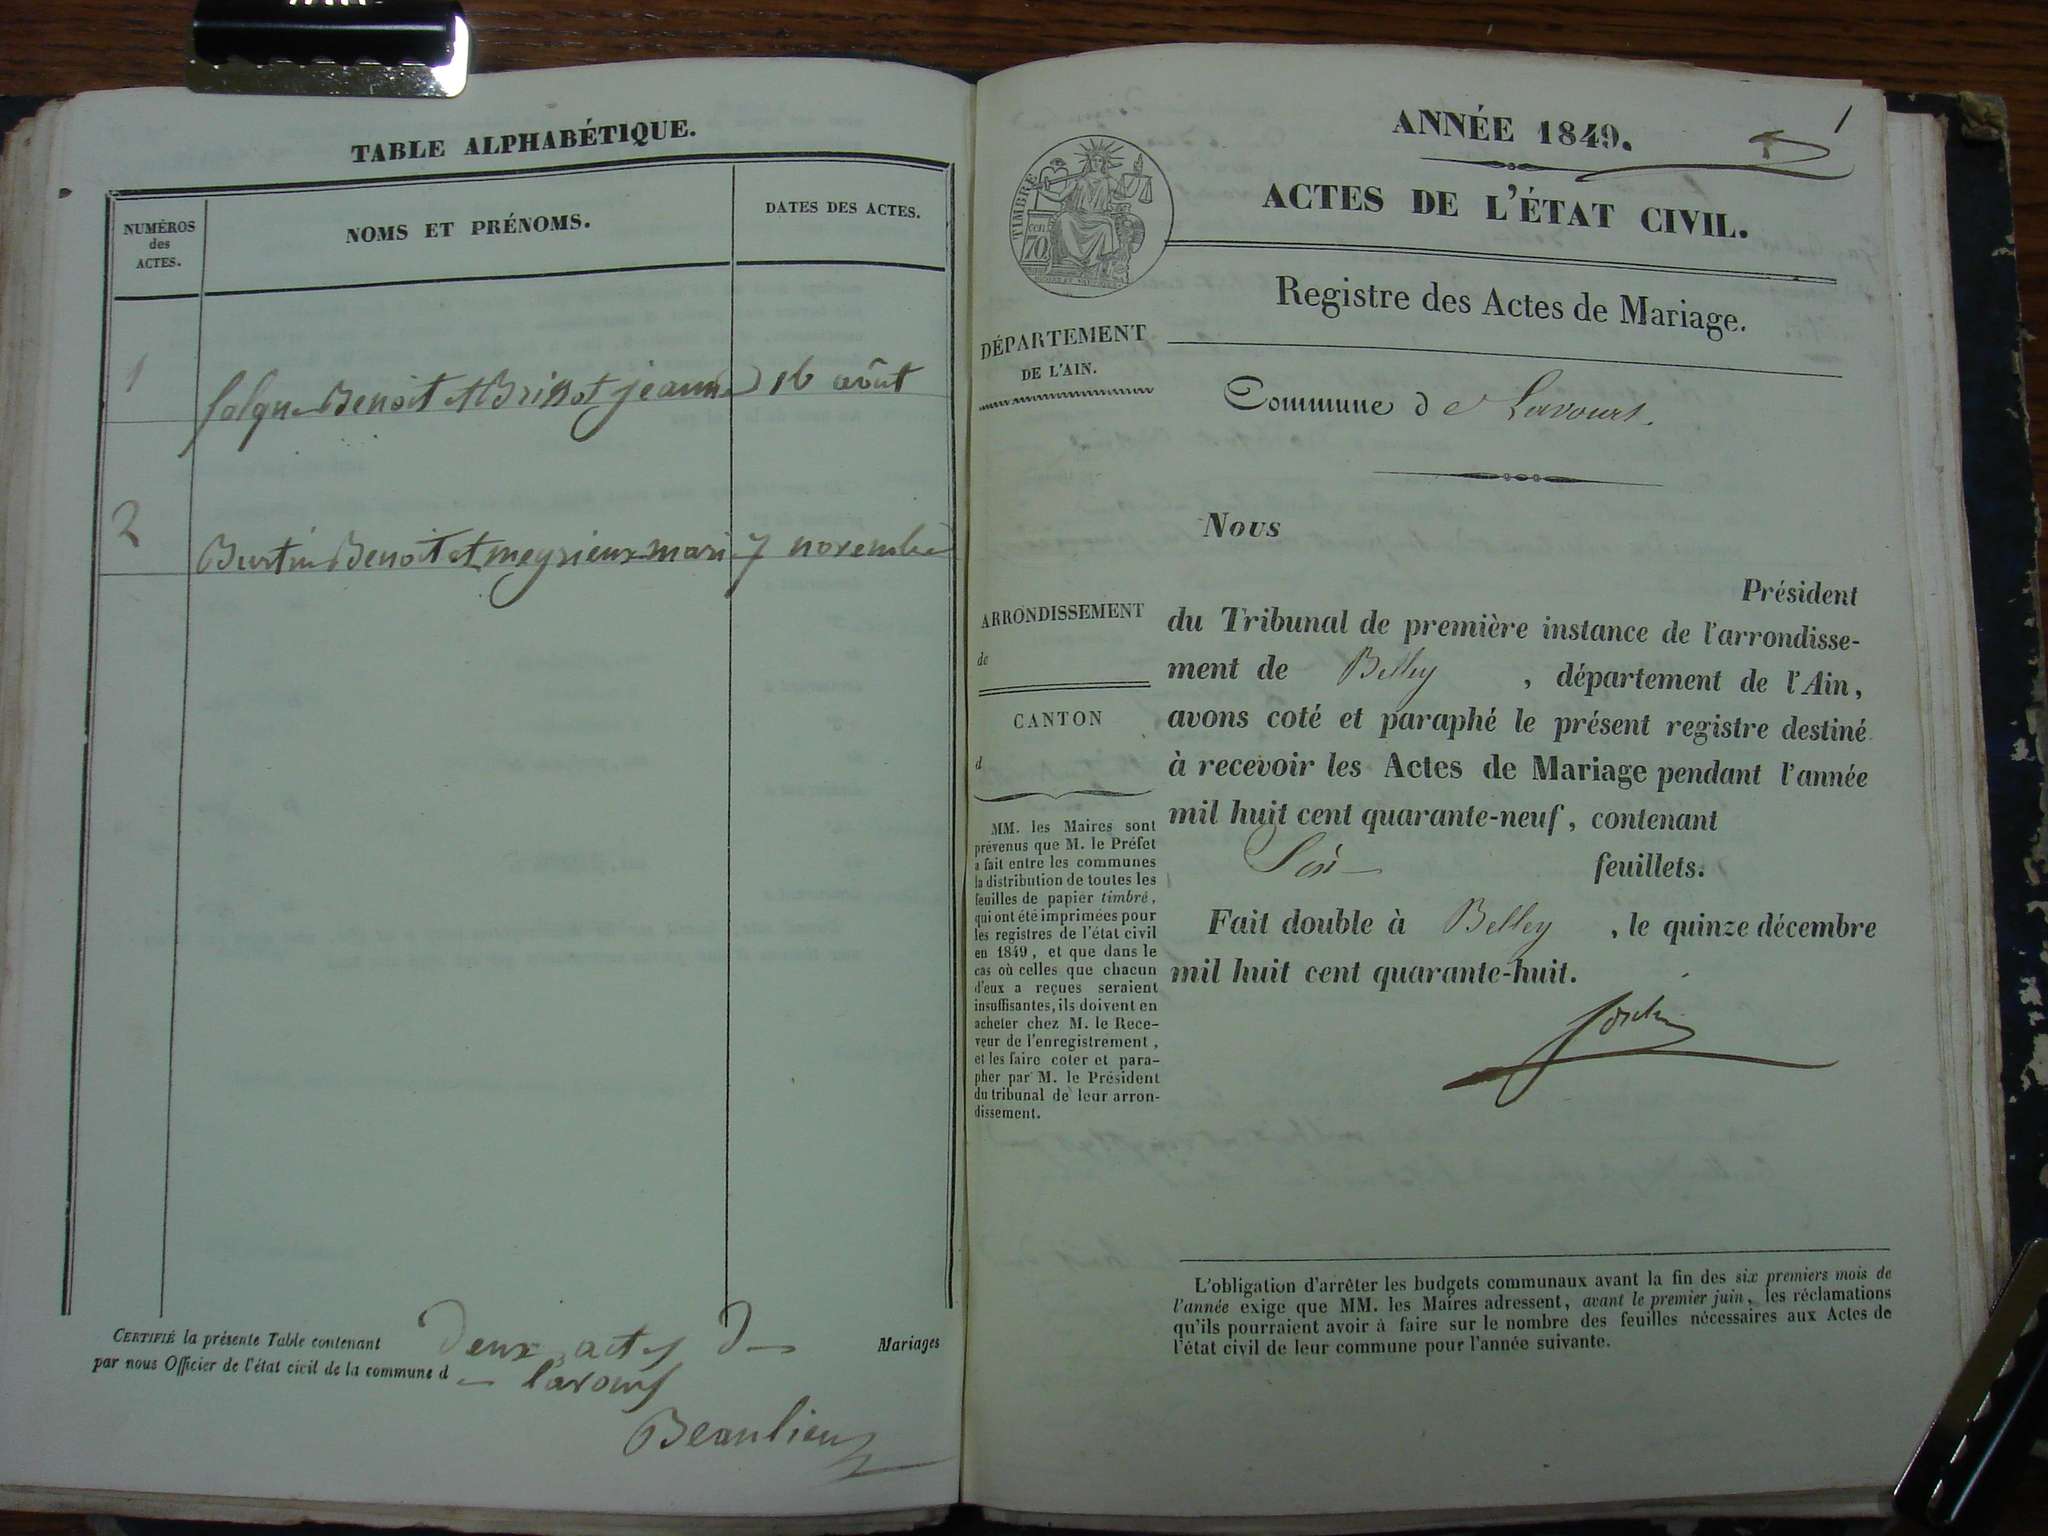 TABLE ALPHABÉTIQUE.
NUMÉROS
des
ACTES.
NOMS ET PRÉNOMS.
DATES DES ACTES.
1
folque Benoit et Brissot jeanne 16 août
2
Burtin Benoit et meyrieux mari 7 novembre
CERTIFIÉ la présente Table contenant deux actes de Mariages
par nous Officier de l'état civil de la commune de lavours
Beaulieu
1
ANNÉE 1849.
ACTES DE L'ÉTAT CIVIL.
TIMBRE
70
Registre des Actes de Mariage.
DÉPARTEMENT
DE L'AIN.
Commune de Lavours.
Nous
Président
du Tribunal de première instance de l'arrondisse-
ment de Belley , département de l'Ain,
avons coté et paraphé le présent registre destiné
à recevoir les Actes de Mariage pendant l'année
mil huit cent quarante-neuf, contenant
Six feuillets.
Fait double à Belley , le quinze décembre
mil huit cent quarante-huit.
ARRONDISSEMENT
de
CANTON
d
MM. les Maires sont
prévenus que M. le Préfet
a fait entre les communes
la distribution de toutes les
feuilles de papier timbré,
qui ont été imprimées pour
les registres de l'état civil
en 1849, et que dans le
cas où celles que chacun
d'eux a reçues seraient
insuffisantes, ils doivent en
acheter chez M. le Rece-
veur de l'enregistrement,
et les faire coter et para-
pher par M. le Président
du tribunal de leur arron-
dissement.
L'obligation d'arrêter les budgets communaux avant la fin des six premiers mois de
l'année exige que MM. les Maires adressent, avant le premier juin, les réclamations
qu'ils pourraient avoir à faire sur le nombre des feuilles nécessaires aux Actes de
l'état civil de leur commune pour l'année suivante.